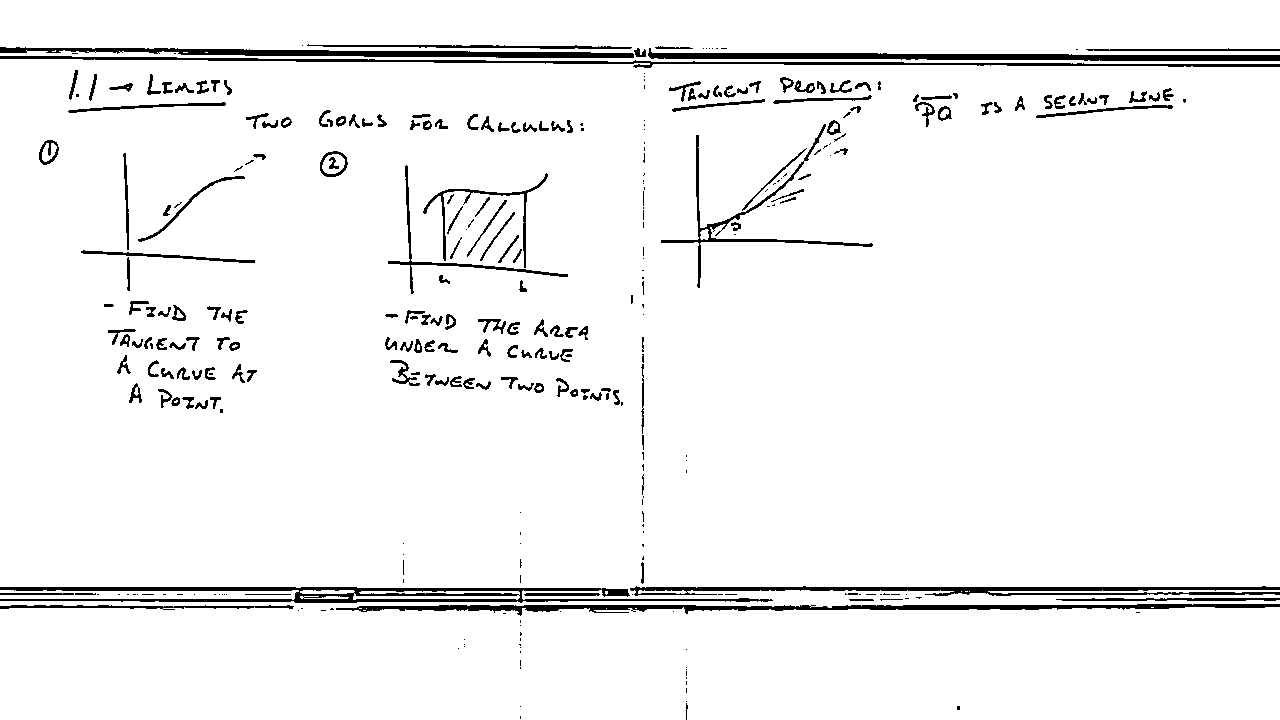 1.1 → LIMITS
TWO GOALS FOR CALCULUS:
①
②
a
b
- FIND THE
TANGENT TO
A CURVE AT
A POINT.
- FIND THE AREA
UNDER A CURVE
BETWEEN TWO POINTS.
TANGENT PROBLEM:
"PQ" IS A SECANT LINE.
Q
P